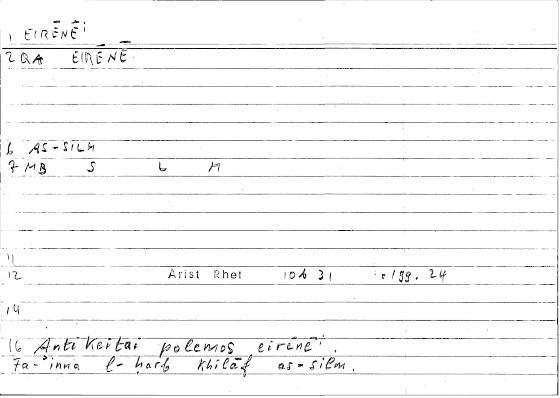 1 EIRĒNĒi
2 QA EIRĒNĒ
6 AS-SILM
7 MB S L M
11
12 Arist Rhet 10b 31 199. 24
14
16 Antikeitai polemos eirēnēi.
Fa-'inna l-ḥarb khilāf as-silm.